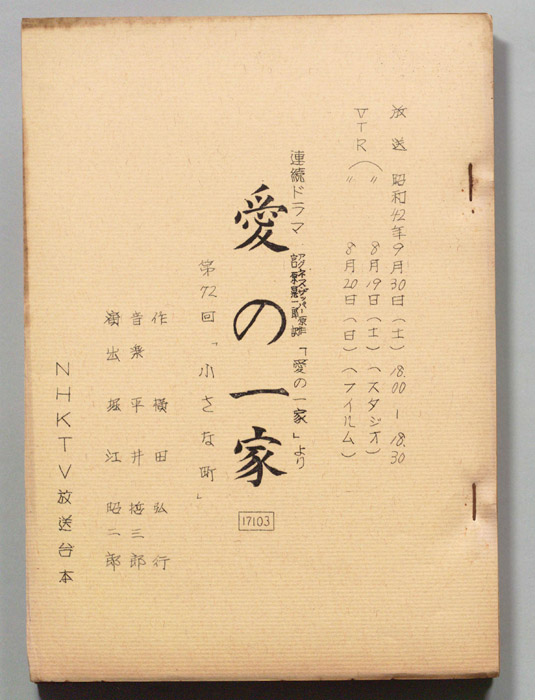 放送 昭和42年9月30日(土)18.00-18.30
VTR(〃 8月19日(土)(スタジオ)
〃 8月20日(日)(フイルム)
連続ドラマ
アグネス・ザッパー原作
宮原晃一郎訳
「愛の一家」より
愛の一家
17103
第72回「小さな町」
作 横田弘行
音楽 平井哲三郎
演出 堀江昭二郎
NHKTV放送台本